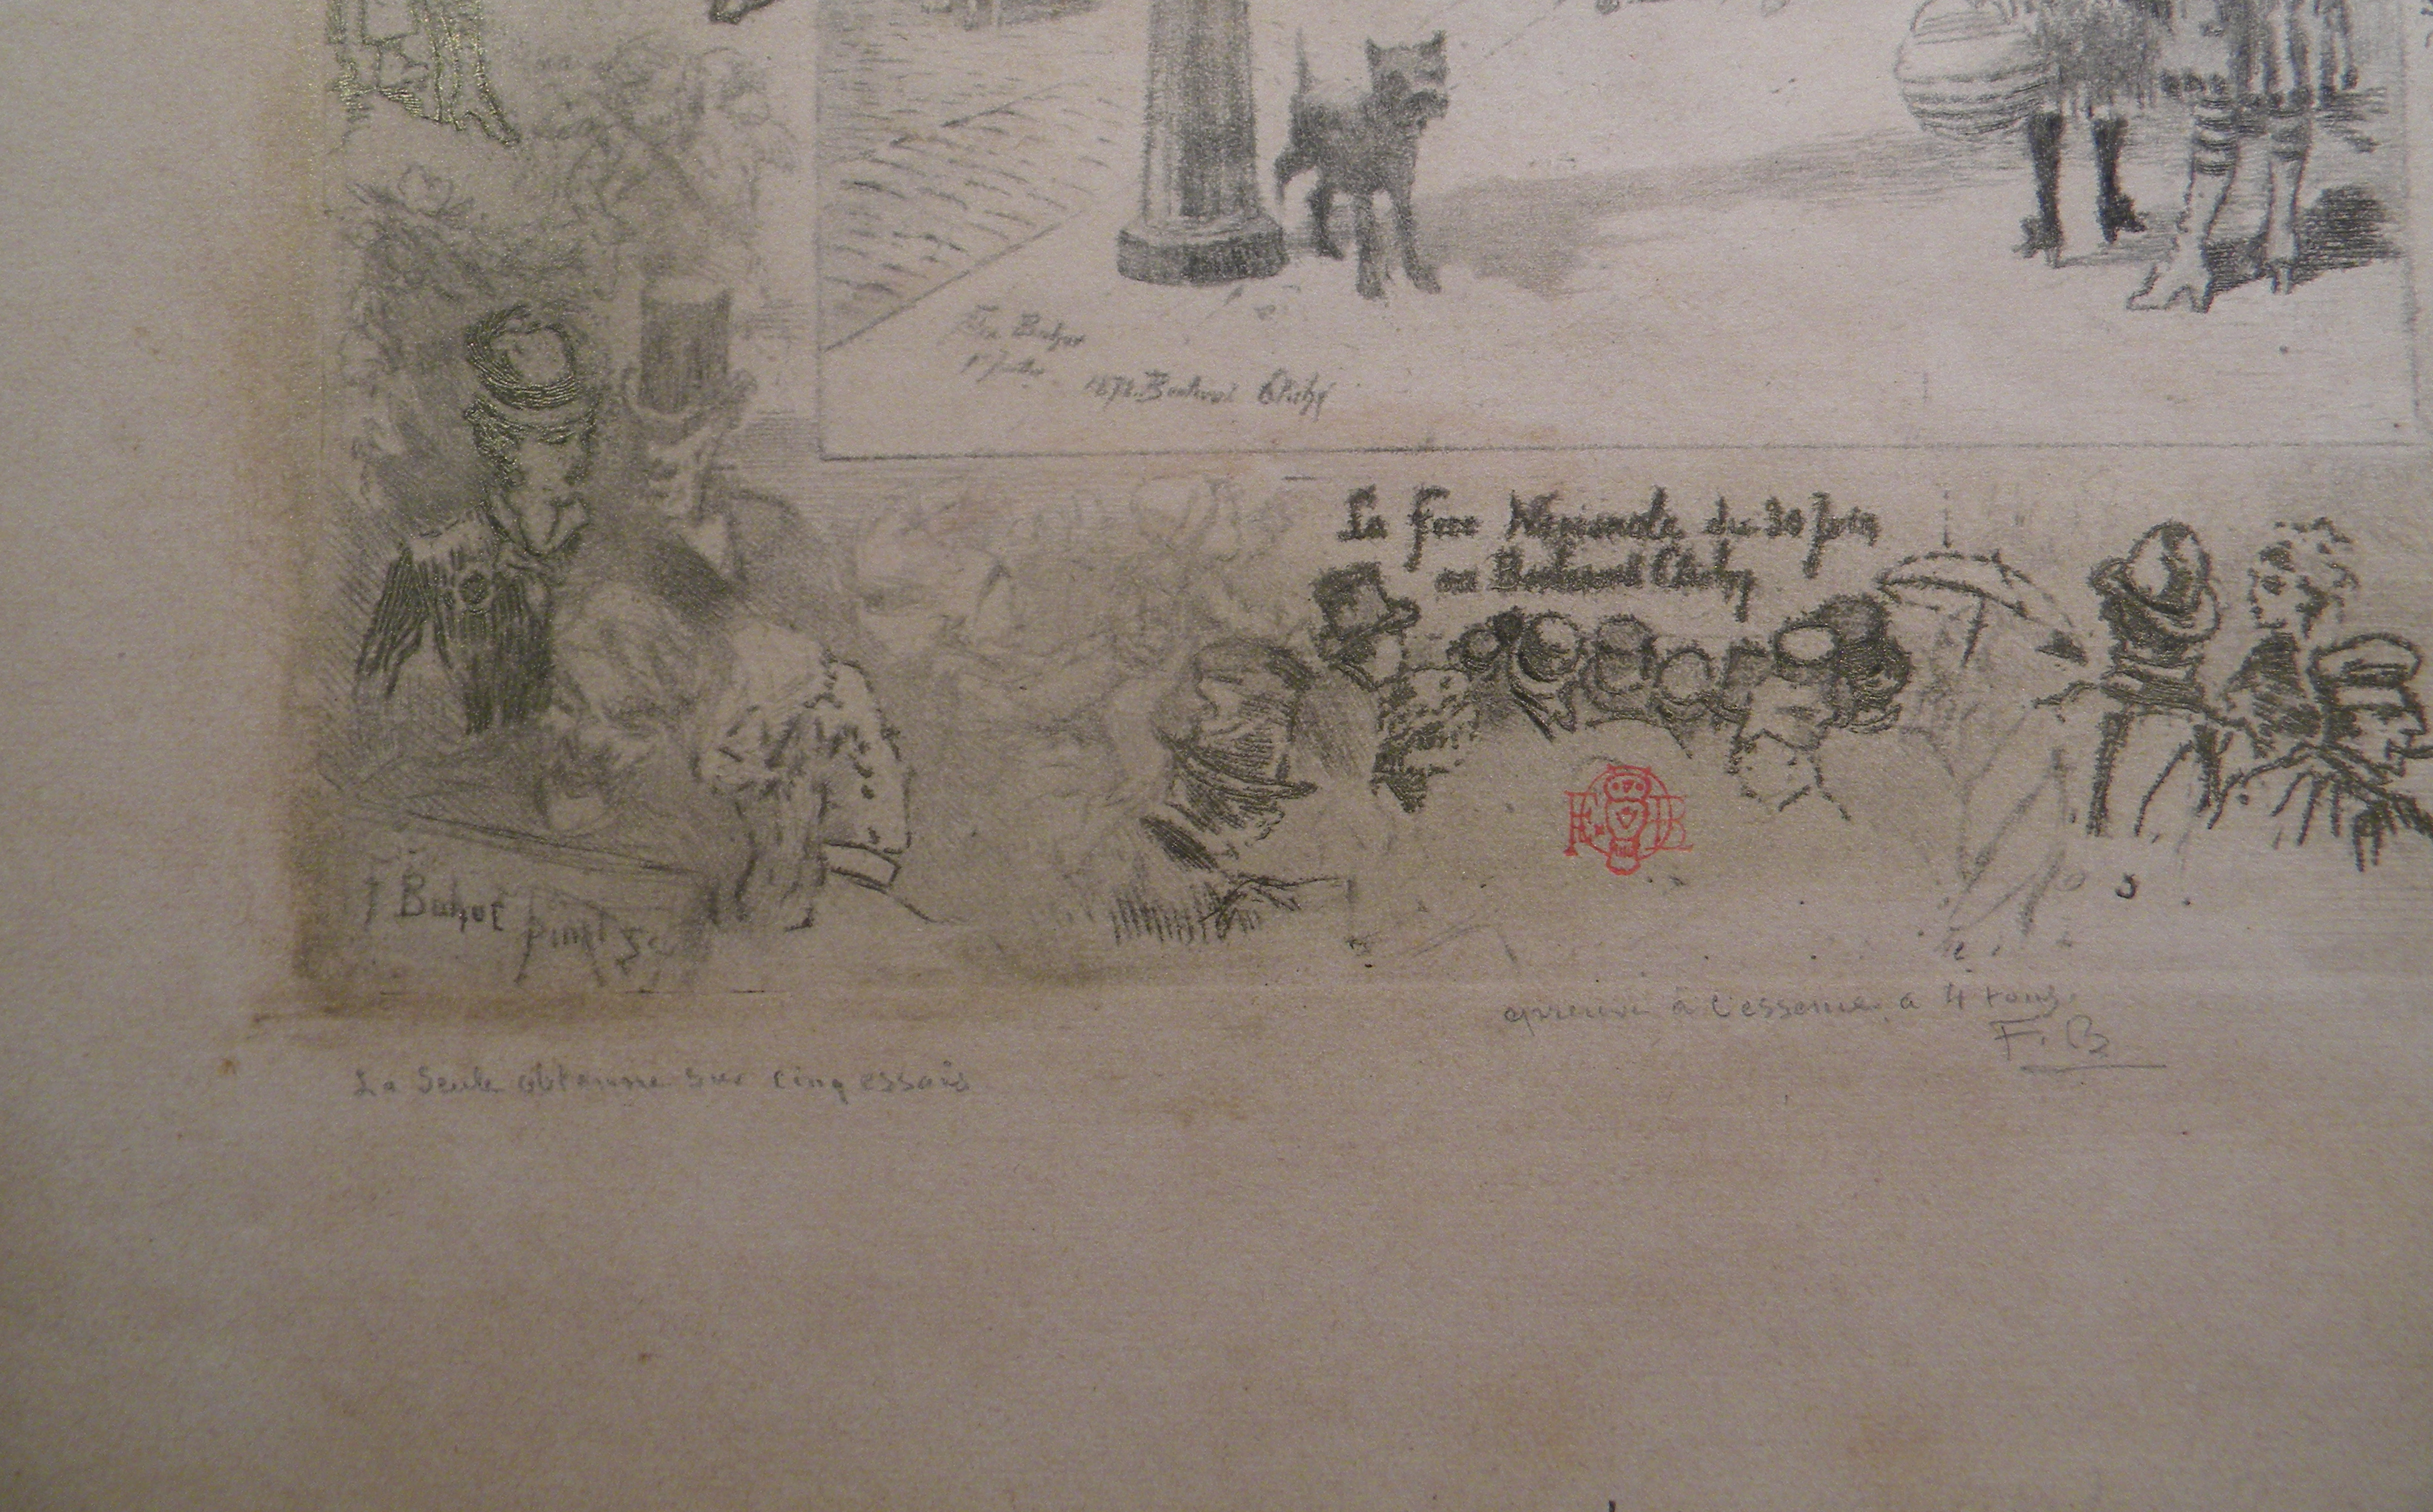 Fx Buhot
1r Juillet
1878. Boulevard Clichy
La fete Nationale du 30 Juin
au Boulevard Clichy
F Buhot pinxt Sc
epreuve à l'essence, a 4 tons.
F. B
La Seule obtenue sur cinq essais